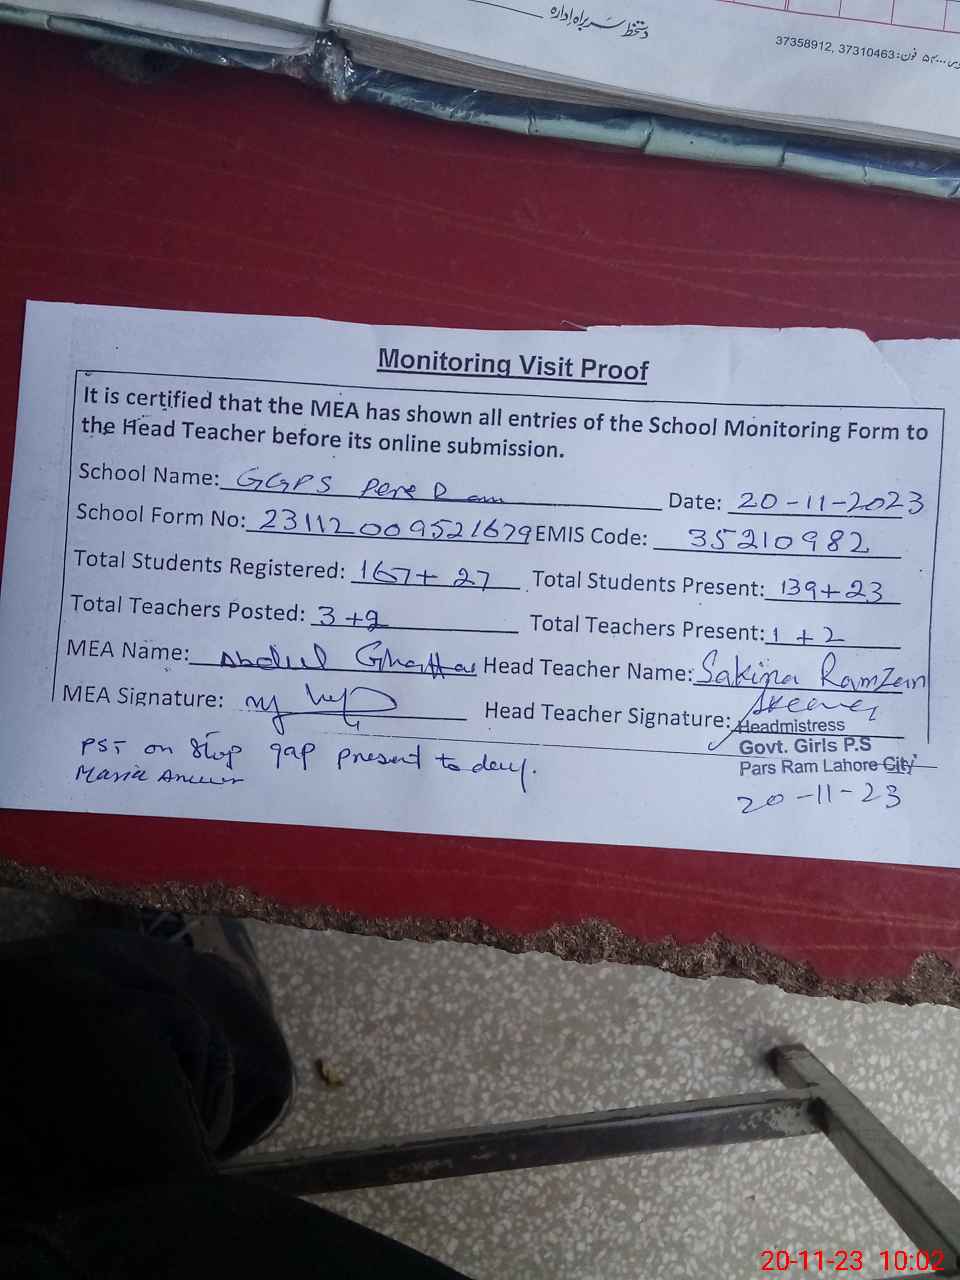 دستخط سربراہ ادارہ
فون: 37358912, 37310463
Monitoring Visit Proof
It is certified that the MEA has shown all entries of the School Monitoring Form to
the Head Teacher before its online submission.
School Name: GGPS Pere Ram Date: 20-11-2023
School Form No: 23112009521679 EMIS Code: 35210982
Total Students Registered: 167+27 Total Students Present: 139+23
Total Teachers Posted: 3+2 Total Teachers Present: 1+2
MEA Name: Abdul Ghaffar Head Teacher Name: Sakina Ramzan
MEA Signature: Head Teacher Signature:
Headmistress
Govt. Girls P.S
Pars Ram Lahore City
PST on Stop gap present to day.
Maria
20-11-23
20-11-23 10:02